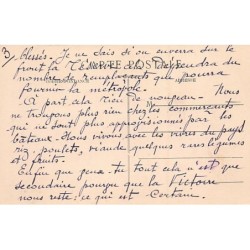 3) blessés. Je ne sais si on enverra sur le
front la
CARTE POSTALE
dépendra du
nombre de remplaçants que pourra
fournir la métropole.
A part cela rien de nouveau. Nous
ne trouvons plus rien chez les commerçants
qui ne sont plus approvisionnés par les
bateaux. Nous vivons avec les vivres du pays
riz, poulets, viande quelques rares légumes
et fruits.
Enfin que veux-tu tout cela n'est que
secondaire pourvu que la Victoire
nous reste, ce qui est certain.